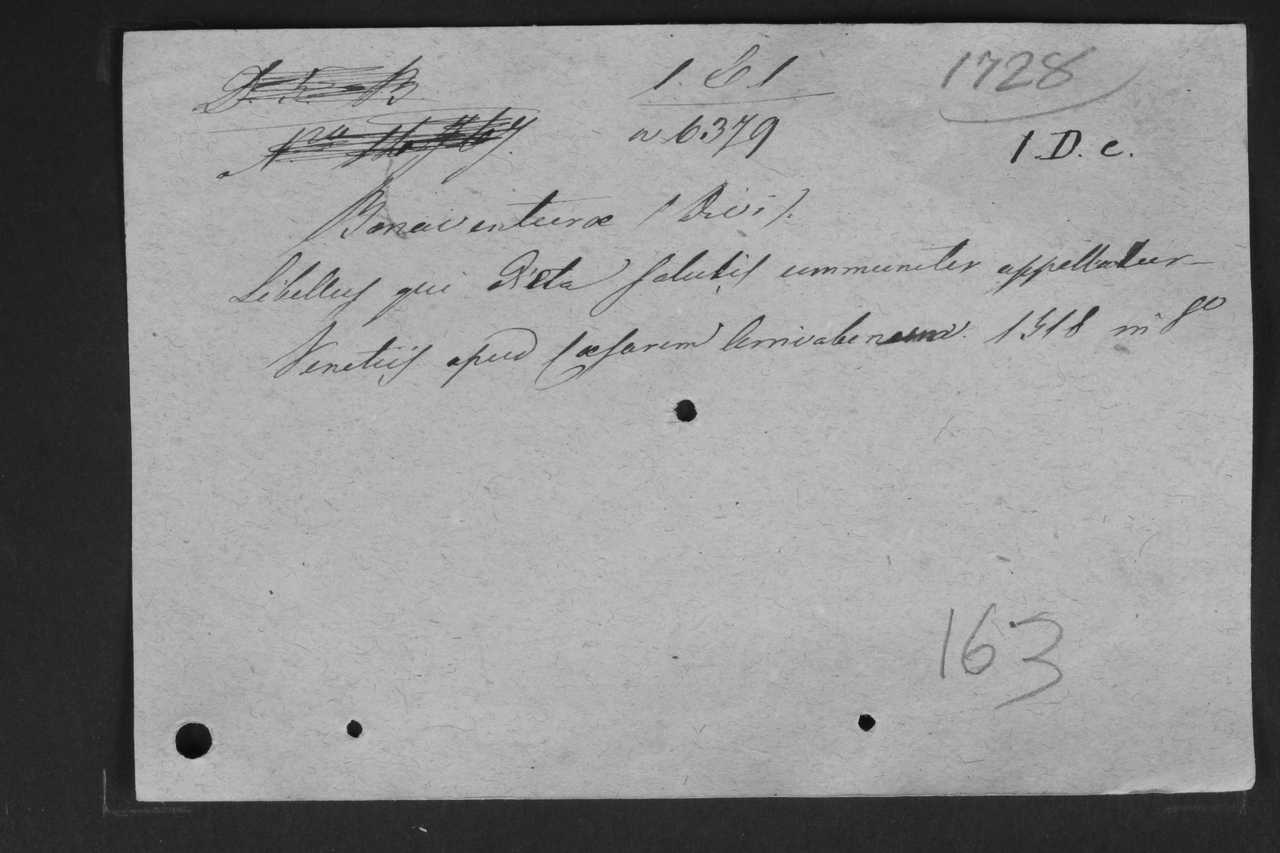 1. E 1
1728
a 6379
1. D. c.
Bonaventuræ (Divi).
Libellus qui Dieta Salutis communiter appellatur—
Venetiis apud Cæsarem Arrivabenum. 1518 in 8º
163